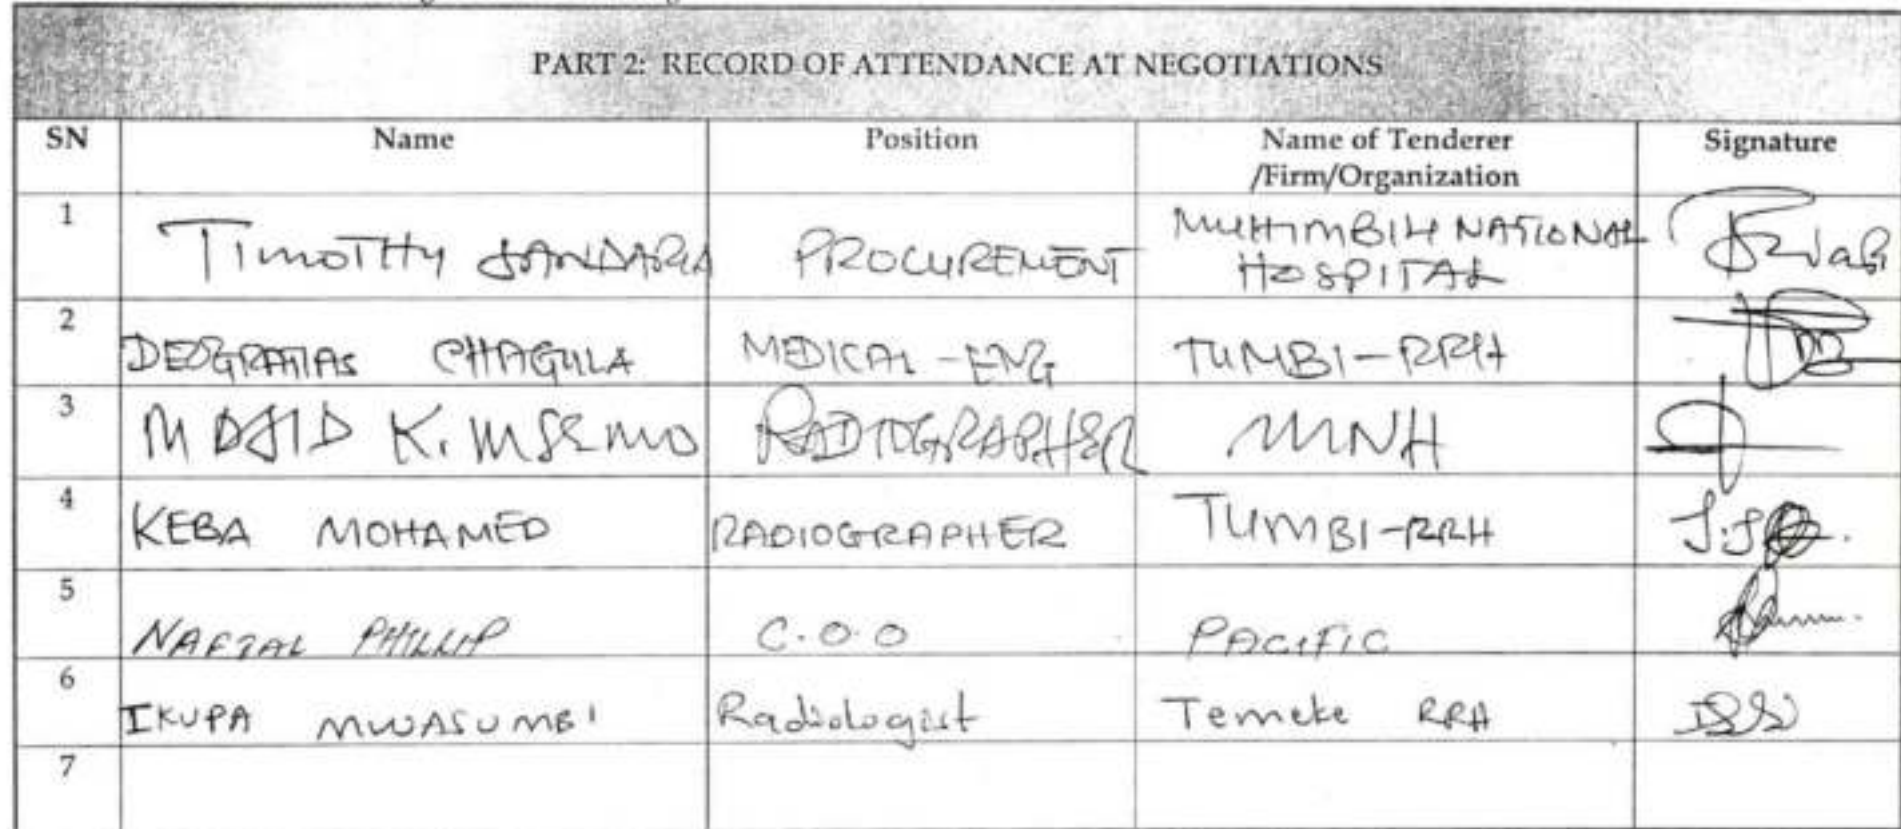 PART 2: RECORD OF ATTENDANCE AT NEGOTIATIONS
SN Name Position Name of Tenderer /Firm/Organization Signature
1 TIMOTHY PROCUREMENT MUHIMBILI NATIONAL HOSPITAL
2 DEOGRATIAS CHAGULA MEDICAL-ENG TUMBI-RRH
3 MAJID K. MSEMO RADIOGRAPHER MNH
4 KEBA MOHAMED RADIOGRAPHER TUMBI-RRH
5 PHILLIP C.O.O PACIFIC
6 IKUPA MWASUMBI Radiologist Temeke RRH
7